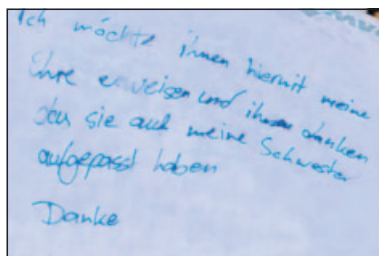 Ich möchte ihnen hiermit meine
Ehre erweisen und ihnen danken
das sie auf meine Schwester
aufgepasst haben
Danke